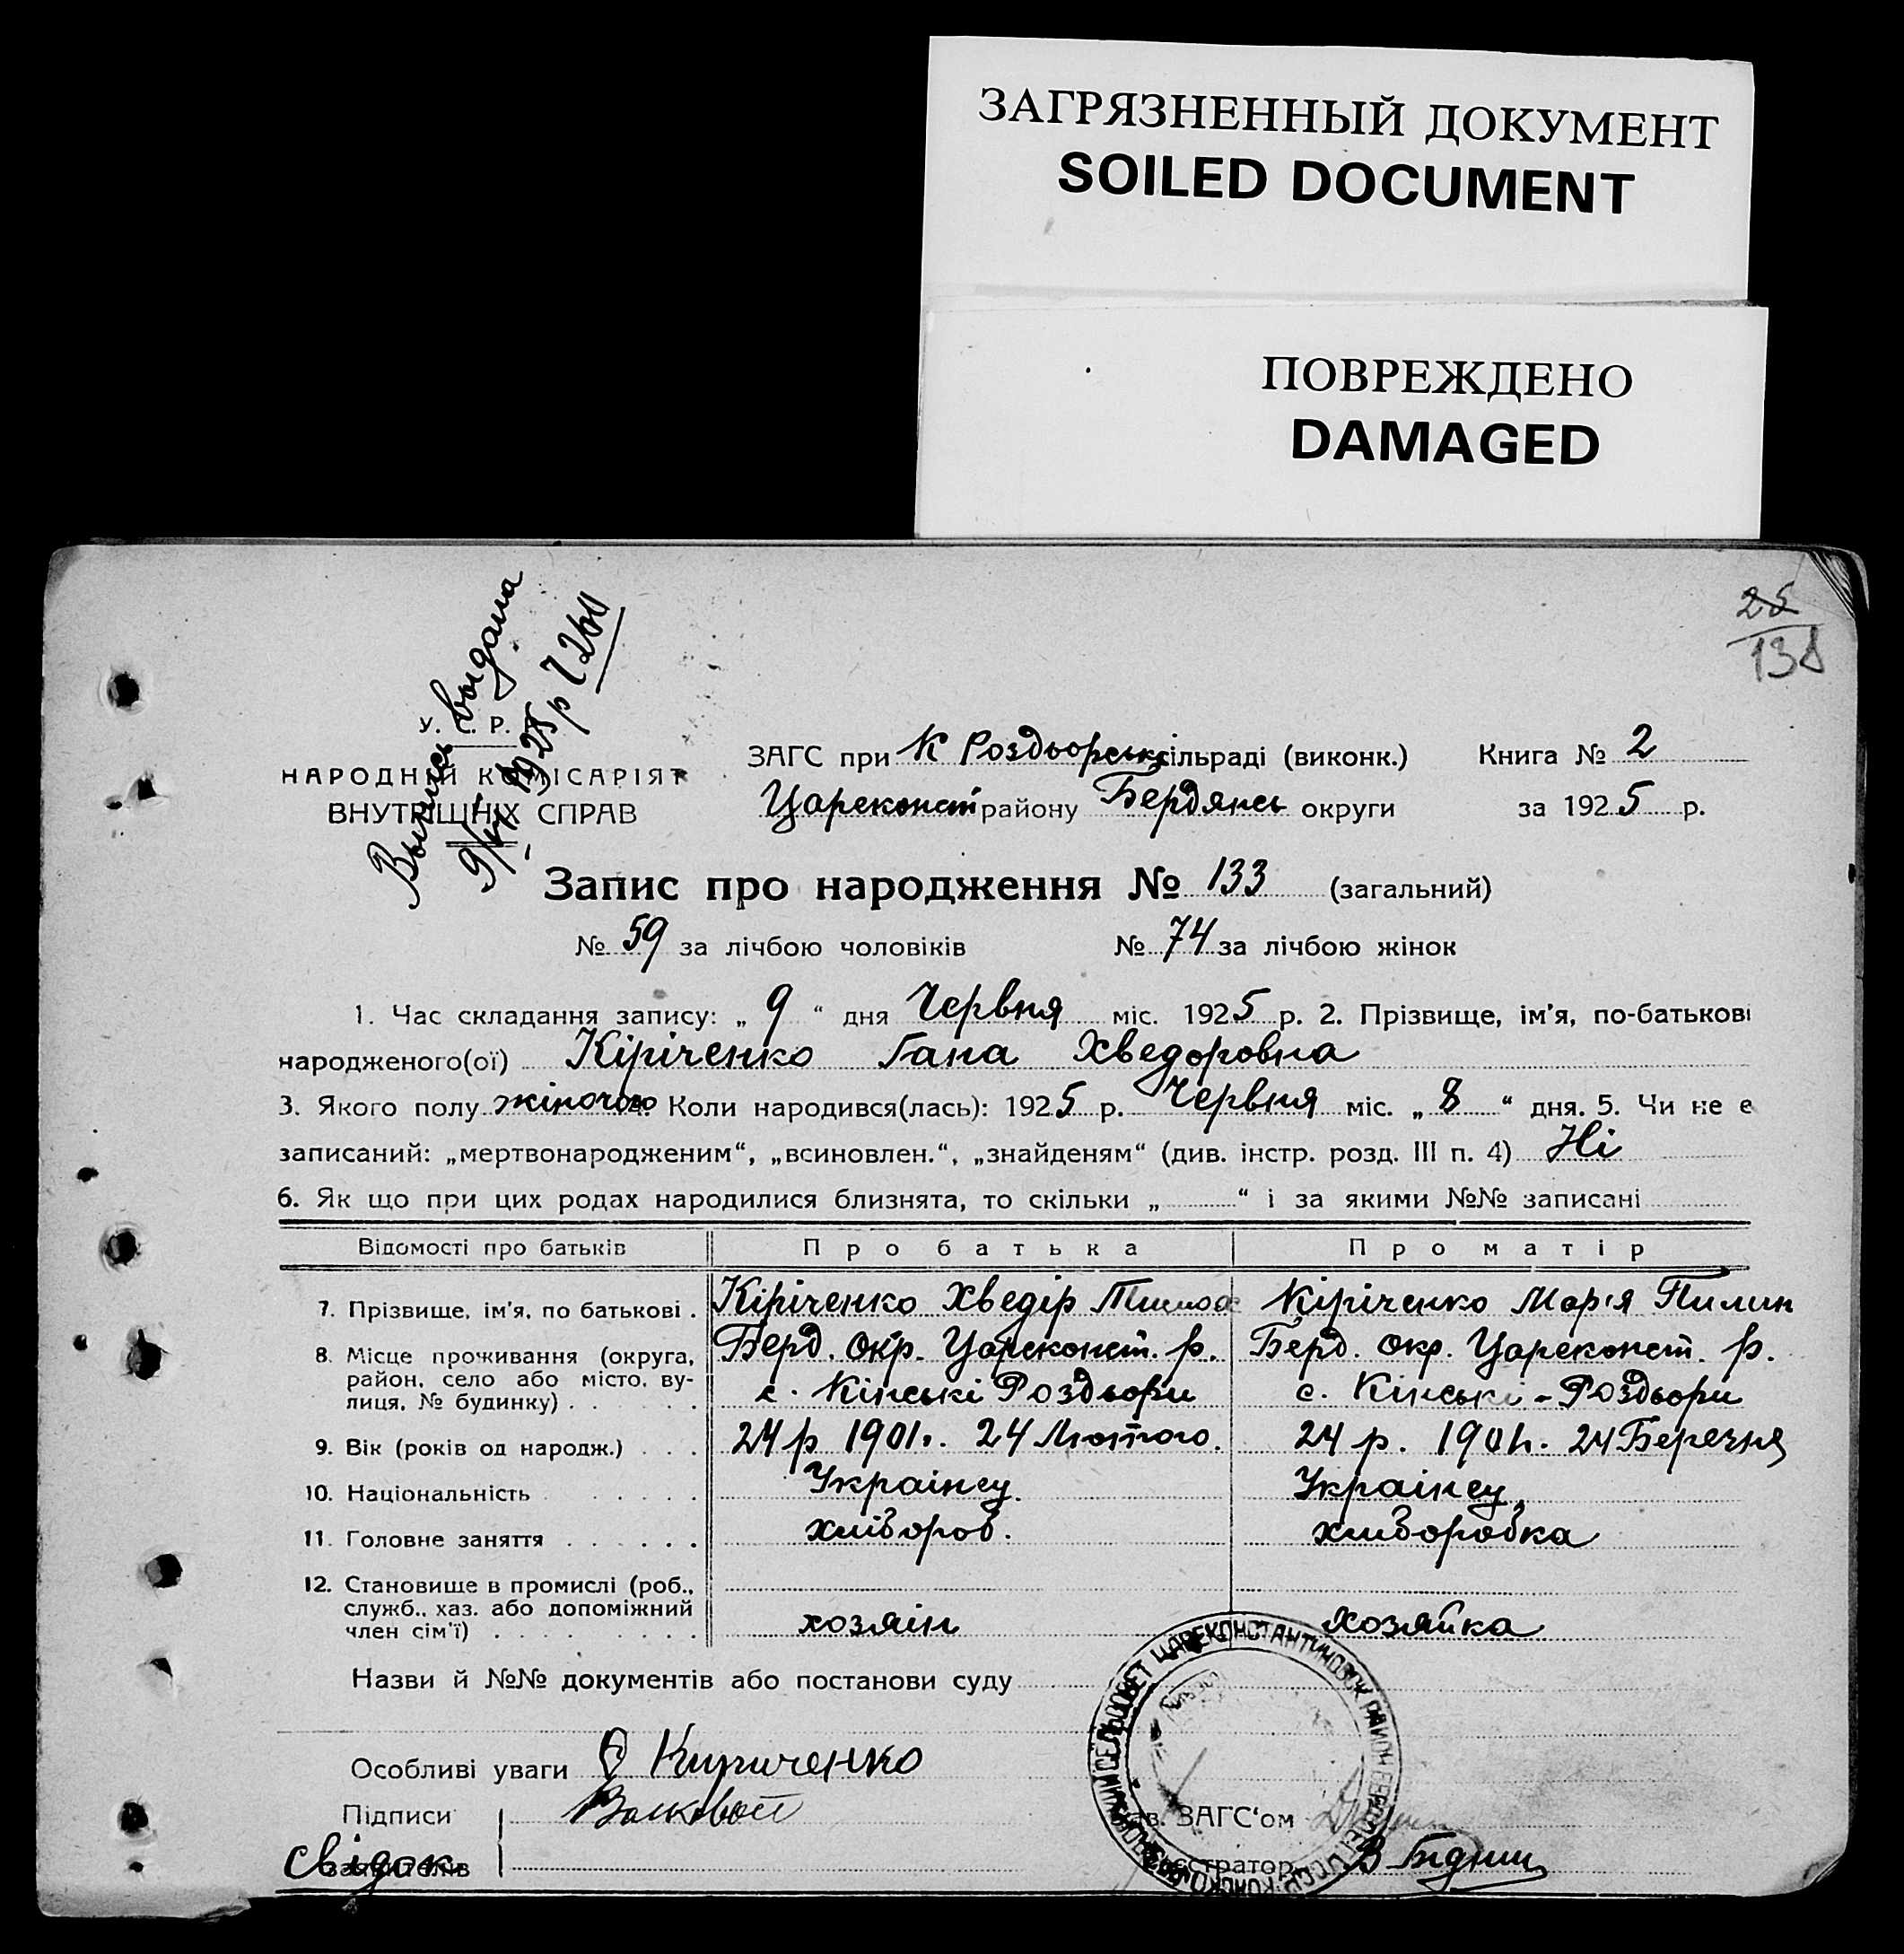 ЗАГРЯЗНЕННЫЙ ДОКУМЕНТ
SOILED DOCUMENT
ПОВРЕЖДЕНО
DAMAGED
25
138
Выпись выдана
9/VI 1925 р
У. С. Р. Р.
НАРОДНІЙ КОМІСАРІЯТ
ВНУТРІШНІХ СПРАВ
ЗАГС при К Роздьорськ сільраді (виконк.) Книга № 2
Цареконст району Бердянсь округи за 1925 р.
Запис про народження № 133 (загальний)
№ 59 за лічбою чоловіків № 74 за лічбою жінок
1. Час складання запису: „ 9 “ дня Червня міс. 1925 р. 2. Прізвище, ім'я, по-батькові
народженого(ої) Кіріченко Гана Хведоровна
3. Якого полу жіночого 4. Коли народився(лась): 1925 р. Червня міс. „ 8 “ дня. 5. Чи не є
записаний: „мертвонародженим“, „всиновлен.“, „знайденям“ (див. інстр. розд. III п. 4) Ні
6. Як що при цих родах народилися близнята, то скільки „ “ і за якими №№ записані
Відомості про батьків Про батька Про матір
7. Прізвище, ім'я, по батькові . Кіріченко Хведір Кіріченко Мар'я Пилип
8. Місце проживання (округа, район, село або місто, вулиця, № будинку) Берд. Окр. Цареконст. р. Берд. Окр. Цареконст. р.
с. Кінські Роздьори с. Кінські - Роздьори
9. Вік (років од народж.) 24 р 1901. 24 Лютого. 24 р. 1901. 24 Беречня
10. Національність Украінец. Украінец.
11. Головне заняття хлібороб. хліборобка
12. Становище в промислі (роб., служб., хаз. або допоміжний член сім'ї) хозяін хозяйка
Назви й №№ документів або постанови суду
Особливі уваги Кириченко
Підписи Волковой Зав. ЗАГС'ом
заявителів Свідок Реєстратор В
СЕЛЬСОВЕТ ЦАРЕКОНСТАНТИНОВСК РАЙОН